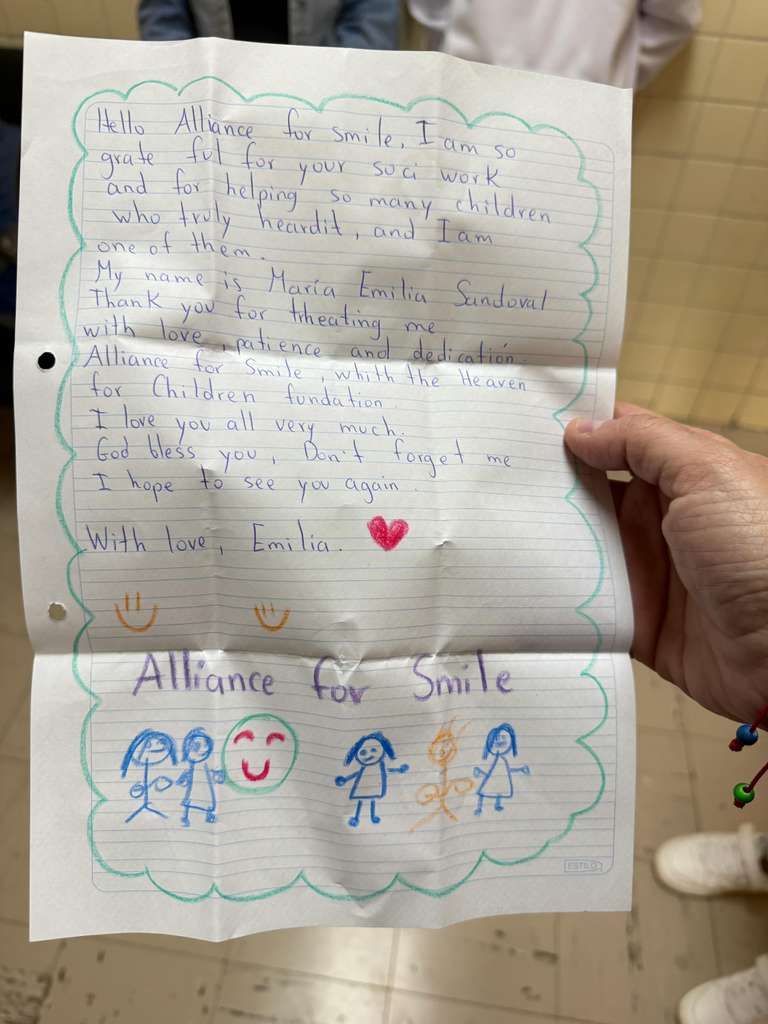 Hello Alliance for smile, I am so
grate ful for your soci work
and for helping so many children
who truly heardit, and I am
one of them.
My name is María Emilia Sandoval
Thank you for trheating me
with love, patience and dedication.
Alliance for Smile, whith the Heaven
for Children fundation.
I love you all very much.
God bless you, Don't forget me
I hope to see you again.
With love, Emilia.
Alliance for Smile
ESTILO